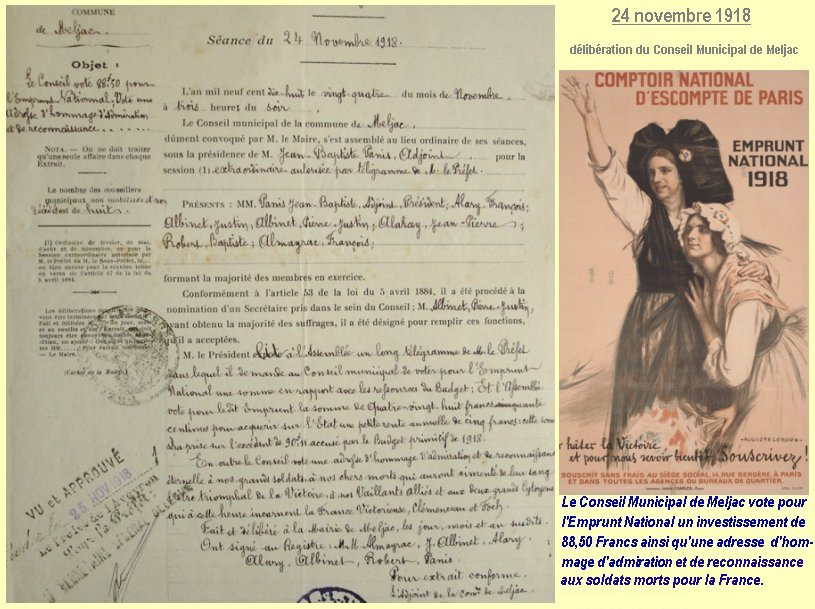 COMMUNE
de Meljac
Objet :
Le Conseil vote 88f50 pour
l'Emprunt National, Vote une
Adresse d'hommage d'Admiration
et de reconnaissance . . . . . .
NOTA. — On ne doit traiter
qu'une seule affaire dans chaque
Extrait.
Le nombre des conseillers
municipaux non mobilisés et non
décédés est de huit.
(1) Ordinaire de février, de mai,
d'août et de novembre, ou pour la
Session extraordinaire autorisée
par M. le Préfet ou M. le Sous-Préfet,
ou bien encore pour la réunion tenue
en vertu de l'article 47 de la loi du
5 avril 1884.
Les délibérations
(Cachet de la Mairie.)
VU et APPROUVÉ
25 NOV 1918
Séance du 24 Novembre 1918.
L'an mil neuf cent dix-huit le vingt-quatre du mois de Novembre,
à trois heures du soir
Le Conseil municipal de la commune de Meljac,
dûment convoqué par M. le Maire, s'est assemblé au lieu ordinaire de ses séances,
sous la présidence de M. Jean-Baptiste Panis, Adjoint, pour la
session (1) extraordinaire autorisée par télégramme de M. le Préfet.
PRÉSENTS : MM. Panis Jean-Baptiste, Adjoint, Président; Alary, François;
Albinet, Justin, Albinet, Pierre-Justin; Jean-Pierre;
Robert, Baptiste; Almayrac, François;
formant la majorité des membres en exercice.
Conformément à l'article 53 de la loi du 5 avril 1884, il a été procédé à la
nomination d'un Secrétaire pris dans le sein du Conseil; M. Albinet, Pierre-Justin,
ayant obtenu la majorité des suffrages, il a été désigné pour remplir ces fonctions,
qu'il a acceptées.
M. le Président Lit à l'Assemblée un long télégramme de M. le Préfet
dans lequel il demande au Conseil municipal de voter pour l'Emprunt
National une somme en rapport avec les ressources du Budget; Et l'Assemblée
vote pour ledit Emprunt la somme de Quatre-vingt-huit francs cinquante
centimes pour acquérir sur l'État une petite rente annuelle de cinq francs; cette somme
sera prise sur l'excédent de accusé par le Budget primitif de 1918.
En outre le Conseil vote une adresse d'hommage d'admiration et de reconnaissance
éternelle à nos grands soldats, à nos chers morts qui auront cimenté de leur sang
l'Arc triomphal de la Victoire, à nos Vaillants Alliés et aux deux grands Citoyens
qui à cette heure incarnent la France Victorieuse, Clémenceau et Foch.
Fait et délibéré à la Mairie de Meljac, les jour, mois et an susdits.
Ont signé au Registre : M.M. Almayrac, J. Albinet, Alary,
Alary, Albinet, Robert, Panis.
Pour extrait conforme.
L'Adjoint de la comne de Meljac,
24 novembre 1918
délibération du Conseil Municipal de Meljac
COMPTOIR NATIONAL
D'ESCOMPTE DE PARIS
EMPRUNT
NATIONAL
1918
AUGUSTE LEROUX
hâter la Victoire
et pour nous revoir bientôt, Souscrivez !
SOUSCRIT SANS FRAIS AU SIÈGE SOCIAL, 14, RUE BERGÈRE, À PARIS
ET DANS TOUTES LES AGENCES OU BUREAUX DE QUARTIER.
Le Conseil Municipal de Meljac vote pour
l'Emprunt National un investissement de
88,50 Francs ainsi qu'une adresse d'hom-
mage d'admiration et de reconnaissance
aux soldats morts pour la France.